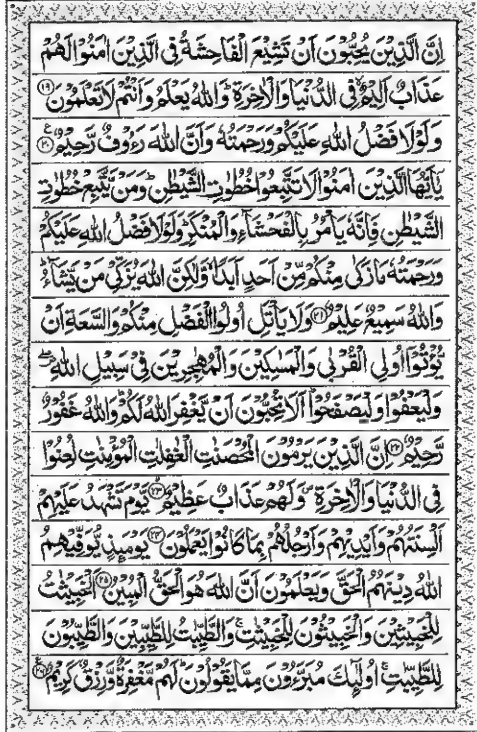 اِنَّ الَّذِيْنَ يُحِبُّوْنَ اَنْ تَشِيْعَ الْفَاحِشَةُ فِى الَّذِيْنَ اٰمَنُوْا لَهُمْ
عَذَابٌ اَلِيْمٌ فِى الدُّنْيَا وَالْاٰخِرَةِ ؕ وَاللّٰهُ يَعْلَمُ وَاَنْتُمْ لَا تَعْلَمُوْنَ ۝۱۹
وَلَوْلَا فَضْلُ اللّٰهِ عَلَيْكُمْ وَرَحْمَتُهٗ وَاَنَّ اللّٰهَ رَءُوْفٌ رَّحِيْمٌ ۝۲۰
يٰۤاَيُّهَا الَّذِيْنَ اٰمَنُوْا لَا تَتَّبِعُوْا خُطُوٰتِ الشَّيْطٰنِ ؕ وَمَنْ يَّتَّبِعْ خُطُوٰتِ
الشَّيْطٰنِ فَاِنَّهٗ يَاْمُرُ بِالْفَحْشَآءِ وَالْمُنْكَرِ ؕ وَلَوْلَا فَضْلُ اللّٰهِ عَلَيْكُمْ
وَرَحْمَتُهٗ مَا زَكٰى مِنْكُمْ مِّنْ اَحَدٍ اَبَدًا ۙ وَّلٰكِنَّ اللّٰهَ يُزَكِّىْ مَنْ يَّشَآءُ ؕ
وَاللّٰهُ سَمِيْعٌ عَلِيْمٌ ۝۲۱ وَلَا يَاْتَلِ اُولُوا الْفَضْلِ مِنْكُمْ وَالسَّعَةِ اَنْ
يُّؤْتُوْۤا اُولِى الْقُرْبٰى وَالْمَسٰكِيْنَ وَالْمُهٰجِرِيْنَ فِىْ سَبِيْلِ اللّٰهِ ۖ
وَلْيَعْفُوْا وَلْيَصْفَحُوْا ؕ اَلَا تُحِبُّوْنَ اَنْ يَّغْفِرَ اللّٰهُ لَكُمْ ؕ وَاللّٰهُ غَفُوْرٌ
رَّحِيْمٌ ۝۲۲ اِنَّ الَّذِيْنَ يَرْمُوْنَ الْمُحْصَنٰتِ الْغٰفِلٰتِ الْمُؤْمِنٰتِ لُعِنُوْا
فِى الدُّنْيَا وَالْاٰخِرَةِ ۪ وَلَهُمْ عَذَابٌ عَظِيْمٌ ۝۲۳ يَّوْمَ تَشْهَدُ عَلَيْهِمْ
اَلْسِنَتُهُمْ وَاَيْدِيْهِمْ وَاَرْجُلُهُمْ بِمَا كَانُوْا يَعْمَلُوْنَ ۝۲۴ يَوْمَئِذٍ يُّوَفِّيْهِمُ
اللّٰهُ دِيْنَهُمُ الْحَقَّ وَيَعْلَمُوْنَ اَنَّ اللّٰهَ هُوَ الْحَقُّ الْمُبِيْنُ ۝۲۵ اَلْخَبِيْثٰتُ
لِلْخَبِيْثِيْنَ وَالْخَبِيْثُوْنَ لِلْخَبِيْثٰتِ ۚ وَالطَّيِّبٰتُ لِلطَّيِّبِيْنَ وَالطَّيِّبُوْنَ
لِلطَّيِّبٰتِ ۚ اُولٰٓئِكَ مُبَرَّءُوْنَ مِمَّا يَقُوْلُوْنَ ؕ لَهُمْ مَّغْفِرَةٌ وَّرِزْقٌ كَرِيْمٌ ۝۲۶